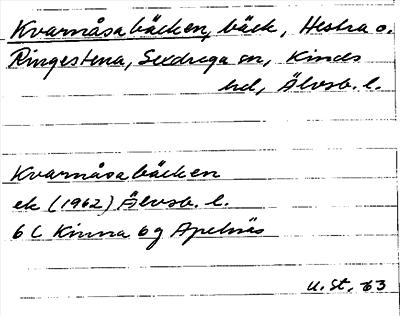 Kvarnåsabäcken, bäck, Hestra o.
Ringestena, Sexdrega sn, Kinds
hd, Älvsb. l.
Kvarnåsabäcken
ek (1962) Älvsb. l.
6 C Kinna 6g Apelnäs
U. St. 63